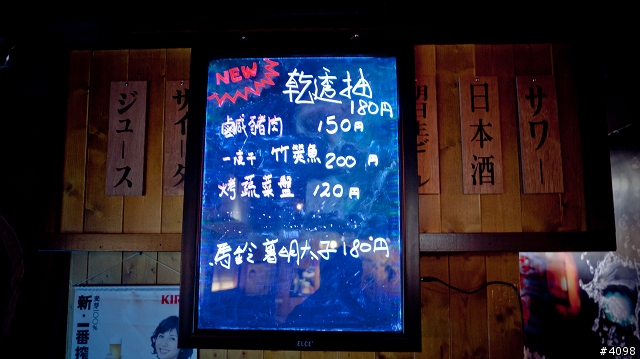 NEW
乾透抽
180円
鹹豬肉 150円
一夜干 竹筴魚 200円
烤蔬菜盤 120円
馬鈴薯明太子 180円
ELCE
ジュース
サイダ
日本酒
サワー
新・一番搾
KIR
#4098